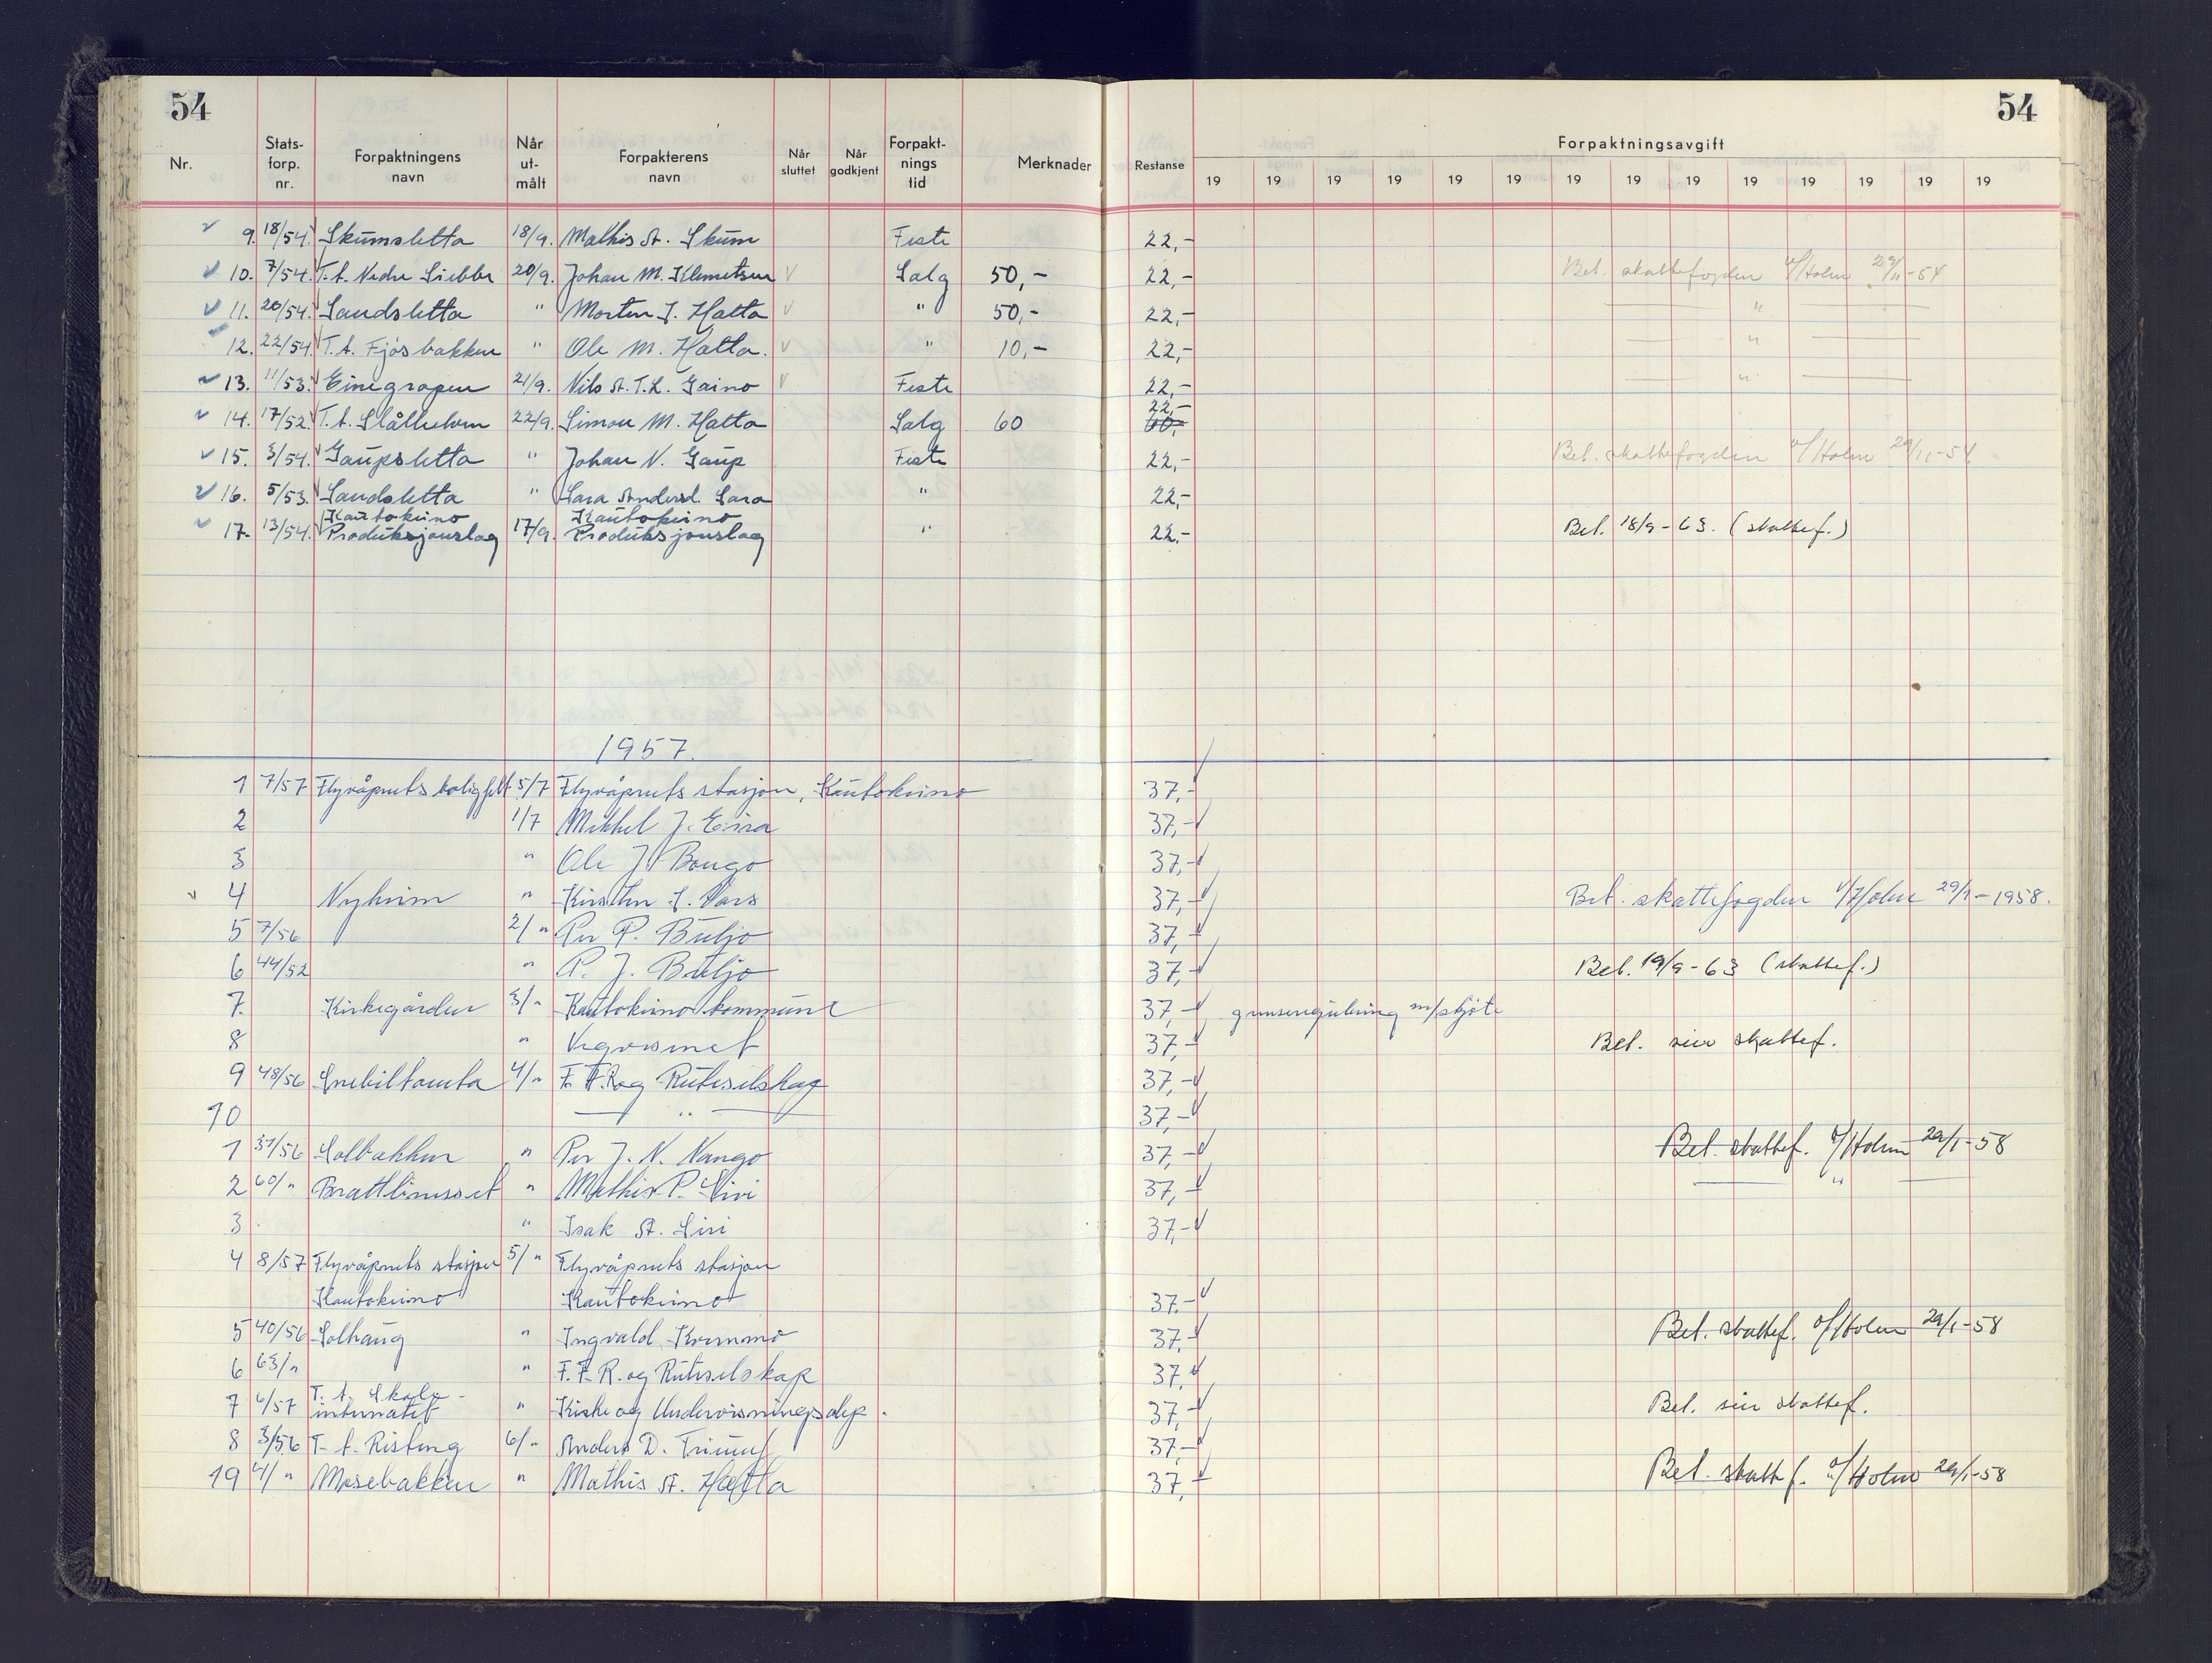 54
54
Nr. Stats-forp. nr. Forpaktningens navn Når ut-målt Forpakterens navn Når sluttet Når godkjent Forpakt-nings tid Merknader Restanse Forpaktningsavgift
19 19 19 19 19 19 19 19 19 19 19 19 19 19
9. 18/54. Skumsletta 18/9. Mathis A. Skum Feste 22,-
10. 7/54. T.t. Nedre Siebbe 20/9. Johan M. Klemetsen Salg 50,- 22,- Bet. skattefogden v/Holm 29/11-54
11. 20/54. Sandsletta " Morten J. Hætta " 50,- 22,- "
12. 22/54. T.t. Fjøsbakken " Ole M. Hætta. " 10,- 22,- "
13. 11/53. Einegropen 21/9. Nils A. T. L. Gaino Feste 22,- "
14. 17/52. T.t. 22/9. Simon M. Hætta Salg 60 22,- 60,-
15. 3/54. Gaupsletta " Johan N. Gaup Feste 22,- Bet. skattefogden v/Holm 29/11-54
16. 5/53. Sandsletta " Sara Andersd. Sara " 22,-
17. 13/54. Kautokeino Produksjonslag 17/9. Kautokeino Produksjonslag " 22,- Bet. 18/9-63. (skattef.)
1957.
1 7/57 Flyvåpnets boligfelt 5/7 Flyvåpnets stasjon, Kautokeino 37,-
2 1/7 Mikkel J. Eira 37,-
3 " Ole J. Bongo 37,-
4 Nyheim " Kirsten J. Vars 37,- Bet. skattefogden v/Holm 29/1-1958.
5 7/56 2/" Per P. Buljo 37,-
6 44/52 " P. J. Buljo 37,- Bet. 19/9-63 (skattef.)
7. Kirkegården 3/" Kautokeino kommune 37,- grenseregulering m/skjøte
8 " Vegvesenet 37,- Bet. sier skattef.
9 48/56 Snebiltomta 4/" F.F.R. og Ruteselskap 37,-
10 " 37,-
1 37/56 Solbakken " Per J. N. Nango 37,- Bet. skattef. v/Holm 29/1-58
2 60/" Brattlineset " Mathis P. Siri 37,- "
3. " Isak A. Siri 37,-
4 8/57 Flyvåpnets stasjon 5/" Flyvåpnets stasjon
Kautokeino Kautokeino 37.-
5 40/56 Solhaug " Ingvald Kvernmo 37,- Bet. skattef. v/Holm 29/1-58
6 63/" " F.F.R. og Ruteselskap 37,-
7 6/57 T.t. Skole-internatet " Kirke og Undervisningsdep. 37,- Bet. sier skattef.
8 3/56 T.t. Risteng 6/" Anders D. Triumf 37,-
19 4/" Mosebakken " Mathis A. Hætta 37,- Bet. skattef. v/Holm 29/1-58